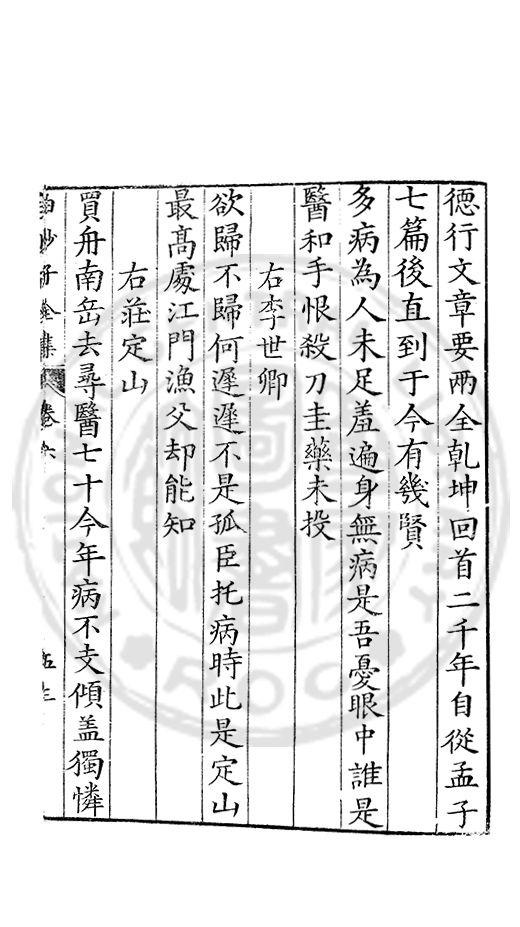 德行文章要兩全乾坤回首二千年自從孟子
七篇後直到于今有幾賢
多病為人未足羞遍身無病是吾憂眼中誰是
醫和手恨殺刀圭藥未投
右李世卿
欲歸不歸何遲遲不是孤臣托病時此是定山
最高處江門漁父却能知
右莊定山
買舟南岳去尋醫七十今年病不支傾盖獨憐
白沙子全集 卷六